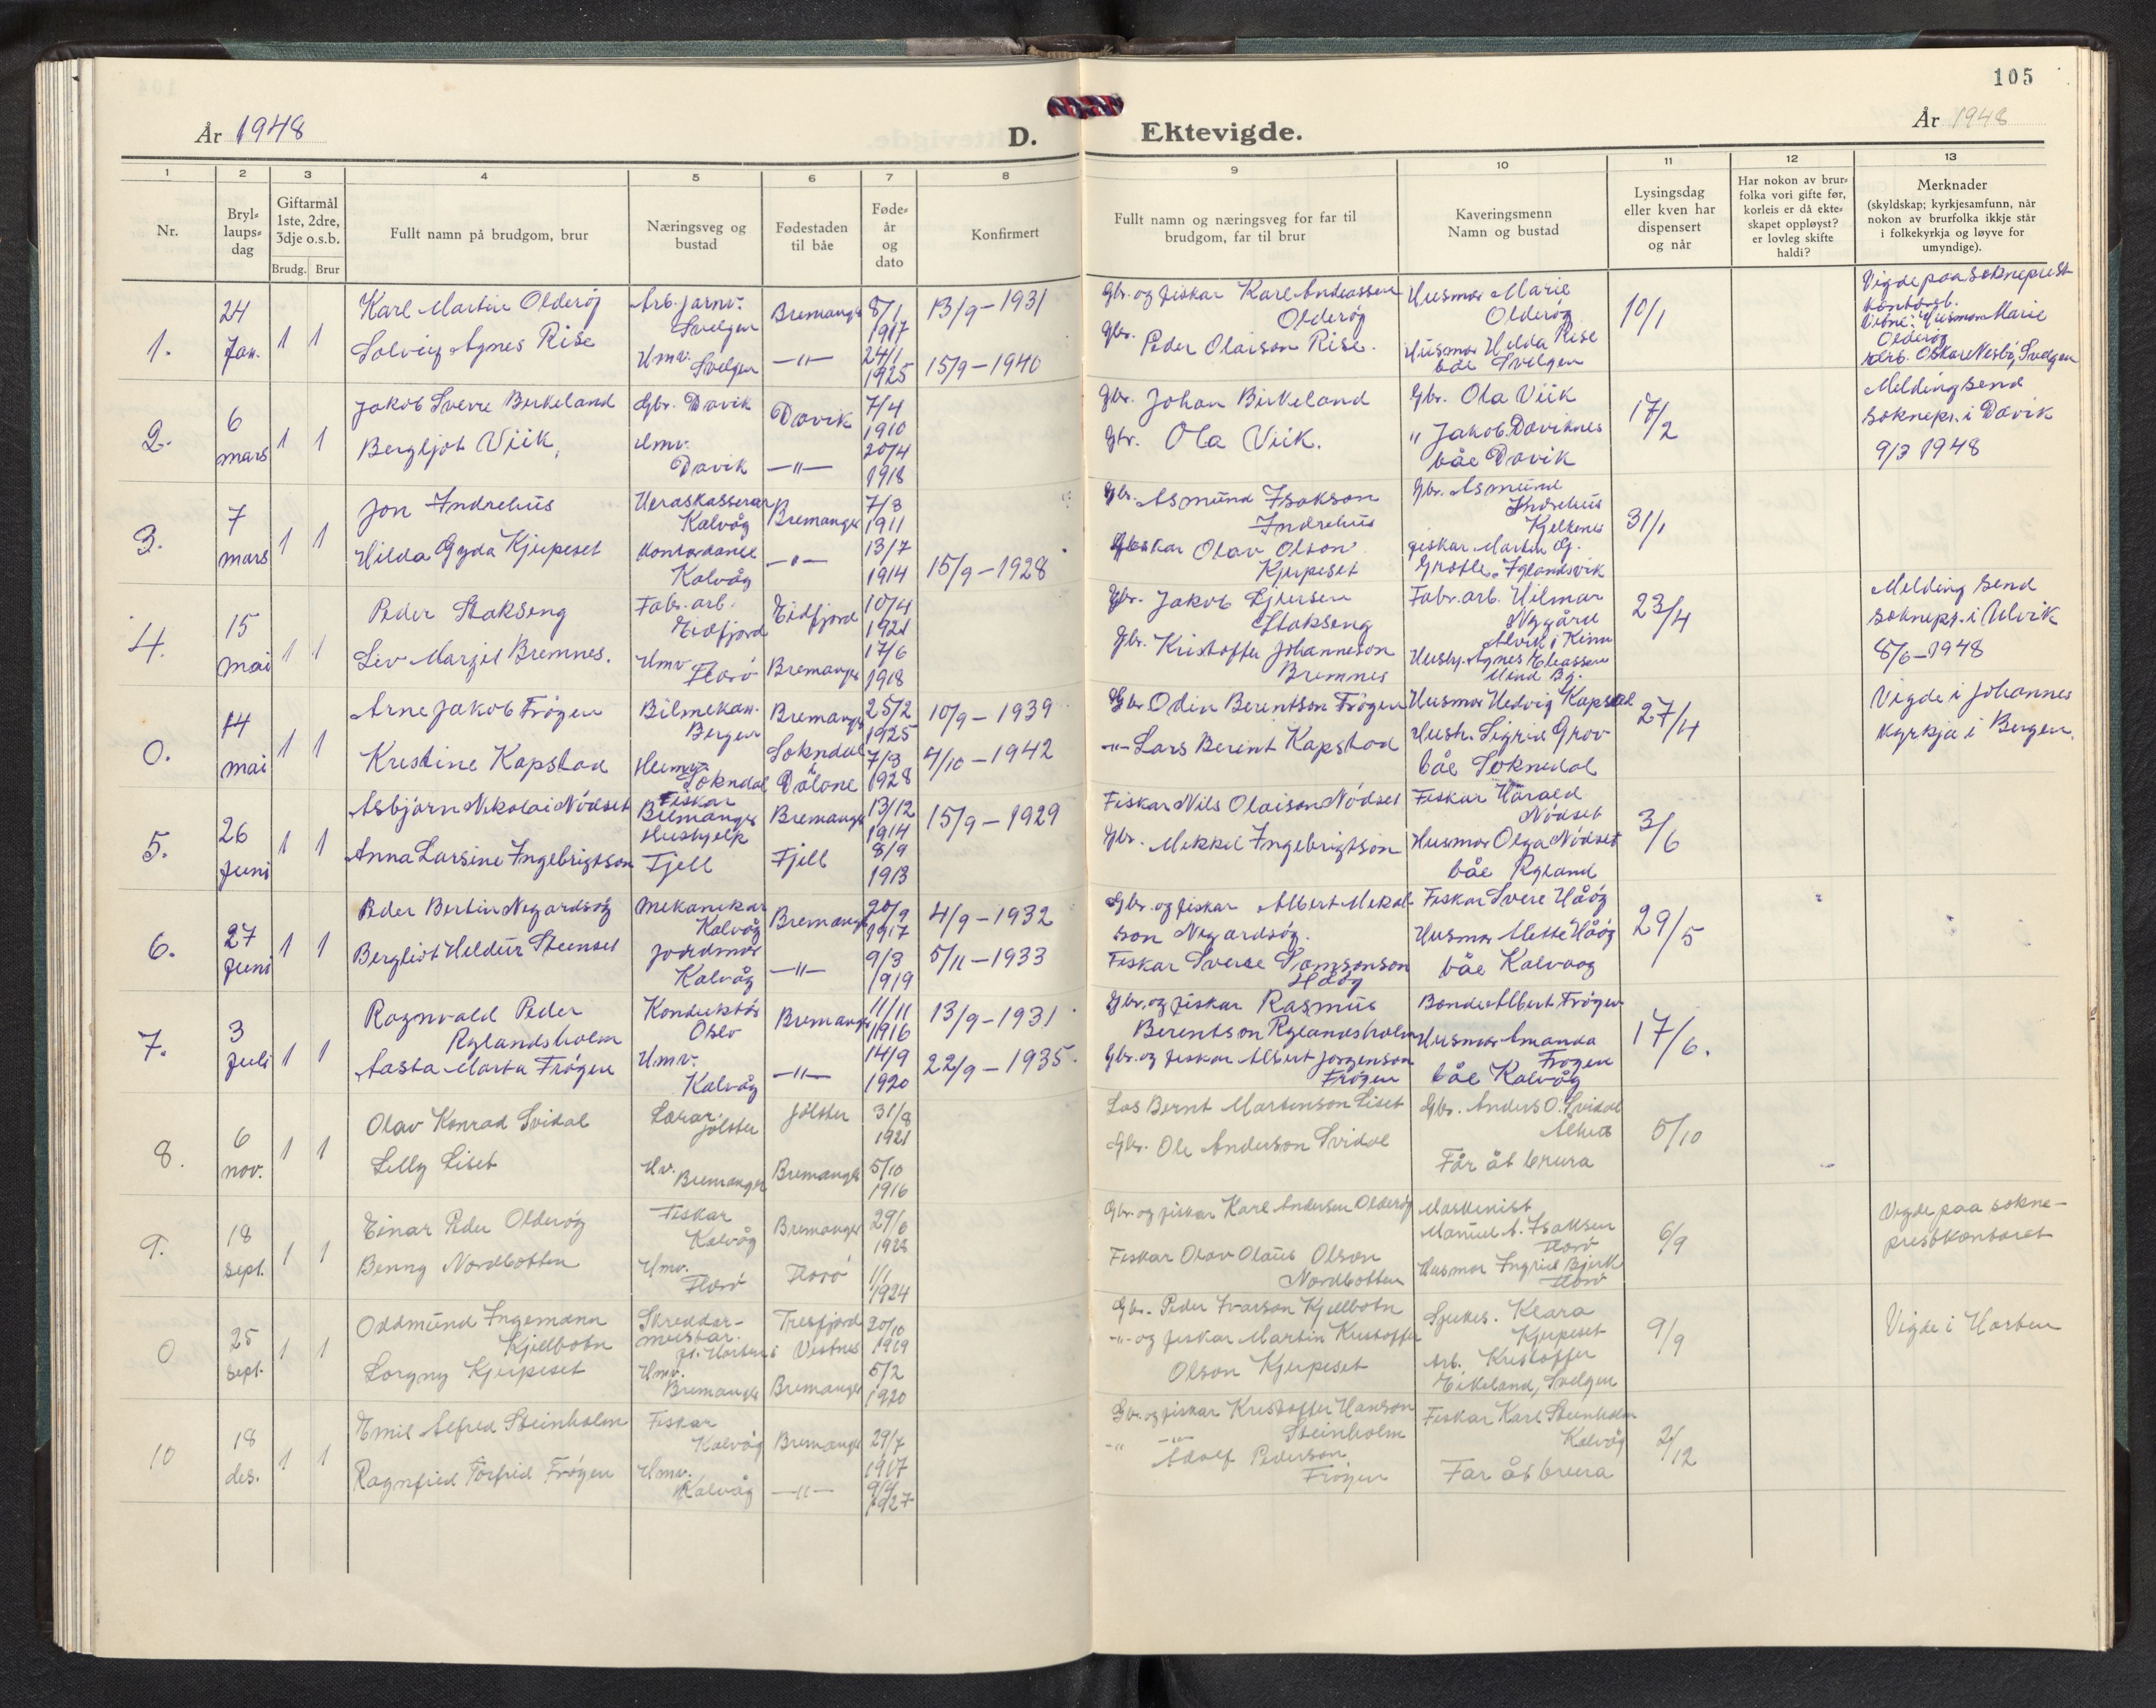 105
År 1948
D.
Ektevigde.
År 1948
1 2 3 4 5 6 7 8 9 10 11 12 13
Nr.
Bryl=
laups=
dag
Giftarmål
1ste, 2dre,
3dje o.s.b.
Brudg. Brur
Fullt namn på brudgom, brur
Næringsveg og
bustad
Fødestaden
til båe
Føde=
år
og
dato
Konfirmert
Fullt namn og næringsveg for far til
brudgom, far til brur
Kaveringsmenn
Namn og bustad
Lysingsdag
eller kven har
dispensert
og når
Har nokon av brur=
folka vori gifte før,
korleis er då ekte=
skapet oppløyst?
er lovleg skifte
haldi?
Merknader
(skyldskap; kyrkjesamfunn, når
nokon av brurfolka ikkje står
i folkekyrkja og løyve for
umyndige).
1. 24 Jan. 1 1
Karl Martin Olderøy
Arb. jarnv. Svelgen
Bremanger
8/1 1917
13/9 - 1931
Gbr. og fiskar Karl Andreassen Olderøy
Husmor Marie Olderøy
10/1
Vigde paa sokneprest
kontoret.
Vitne: Husmor Marie
Olderøy
Arb. Oskar Nesbø, Svelgen
Solveig Agnes Rise
Hmv. Svelgen
-"-
24/1 1925
15/9 - 1940
Gbr. Peder Olaison Rise.
Husmor Hilda Rise
båe Svelgen
2. 6 mars 1 1
Jakob Sverre Birkeland
Gbr. Davik
Davik
7/4 1910
Gbr. Johan Birkeland
Gbr. Ola Viik
17/2
Melding send
soknepr. i Davik
9/3 1948
Bergljot Viik,
Hmv. Davik
-"-
20/4 1918
Gbr. Ola Viik.
" Jakob Daviknes
båe Davik
3. 7 mars 1 1
Jon Indrehus
Heraskasserar Kalvåg
Bremanger
7/8 1911
Gbr. Asmund Isakson Indrehus
Gbr. Asmund Indrehus Kjelkenes
31/1
Hilda Gyda Kjerpeset
Kontordame Kalvåg
-"-
13/7 1914
15/9 - 1928
Fiskar Olav Olson Kjerpeset
fiskar Martin G. Grotle, Iglandsvik
4. 15 mai 1 1
Peder Stokseng
Fabr. arb. Eidfjord
Eidfjord
10/4 1921
Gbr. Jakob Stokseng
Fabr. arb. Hilmar Nygård
Ålvik i Kinn
23/4
Melding send
soknepr. i Ulvik
8/6 - 1948
Liv Margit Bremnes.
Hmv. Florø
Bremanger
17/6 1918
Gbr. Kristoffer Johanneson Bremnes
Hushj. Agnes Eliassen
0. 14 mai 1 1
Arne Jakob Frøyen
Bilmekan. Bergen
Bremanger
25/2 1925
10/9 - 1939
Gbr Odin Berentson Frøyen
Husmor Hedvig Kapstad
27/4
Vigde i Johannes
kyrkja i Bergen.
Kristine Kapstad
Heimev. Sokndal
Sokndal i Dalane
7/3 1928
4/10 - 1942
-"- Lars Berint Kapstad
Hustr. Sigrid Grov
båe Soknedal
5. 26 Juni 1 1
Asbjørn Nikolai Nødset
Fiskar Bremanger
Bremanger
13/12 1914
15/9 - 1929
Fiskar Nils Olaison Nødset
Fiskar Harald Nødset
3/6
Anna Larsine Ingebrigtson
Hushjelp Fjell
Fjell
8/9 1913
Gbr. Mikkel Ingebrigtson
Husmor Olga Nødset
båe Ryland
6. 27 Juni 1 1
Peder Bertin Nygardsøy
Mekanikar Kalvåg
Bremanger
20/9 1917
4/9 - 1932
Gbr. og fiskar Albert Mekal-
son Nygardsøy.
Fiskar Svere Håøy
29/5
Bergliot Heldur Steinset
Jordmor Kalvåg
-"-
9/3 1919
5/11 - 1933
Fiskar Sverre Samsonson Håøy
Husmor Mette Håøy
båe Kalvaag
7. 3 Juli 1 1
Ragnvald Peder Rylandsholm
Konduktør Oslo
Bremanger
11/11 1916
13/9 - 1931
Gbr. og fiskar Rasmus
Berentson Rylandsholm
Bonde Albert Frøyen
17/6.
Aasta Marta Frøyen
Hmv. Kalvåg
-"-
14/9 1920
22/9 - 1935.
Gbr. og fiskar Albert Jørgenson Frøyen
Husmor Amanda Frøyen
båe Kalvåg
8. 6 nov. 1 1
Olav Konrad Svidal
Lærar Jølster
Jølster
31/8 1921
Los Bernt Martenson Liset
Gbr. Anders O. Svidal
Ålhus
5/10
Lilly Liset
Hv. Bremanger
Bremanger
5/10 1916
Gbr. Ole Anderson Svidal
Far åt brura
9. 18 sept. 1 1
Einar Peder Olderøy
Fiskar Kalvåg
Bremanger
29/6 1928
Gbr og fiskar Karl Andersen Olderøy
Maskinist
Manuel A. Isaksen Florø
6/9
Vigde paa sokne-
prestkontoret
Benny Nordbotten
Hmv. Florø
Florø
1/1 1924
Fiskar Olav Olaus Olson Nordbotten
Husmor Ingrid Bjerk Florø
0 25 sept. 1 1
Oddmund Ingemann Kjellbotn
Skreddar-
meistar. Horten
Tresfjord i Vestnes
20/10 1919
Gbr. Peder Ivarson Kjellbotn
Sjukes. Klara Kjerpeset
9/9
Vigde i Horten
Lorgny Kjerpeset
Hmv. Bremanger
Bremanger
5/2 1920
-"- og fiskar Martin Kristoffer
Olson Kjerpeset
Arb. Kristoffer
Eikeland, Svelgen
10 18 des. 1 1
Emil Alfred Steinholm
Fiskar Kalvåg
Bremanger
29/7 1917
Gbr. og fiskar Kristoffer Hanson Steinholm
Fiskar Karl Steinholm
Kalvåg
2/12
Ragnfrid Torfrid Frøyen
Hmv. Kalvåg
-"-
9/9 1927
-"- -"- Adolf Pederson Frøyen
Far åt brura